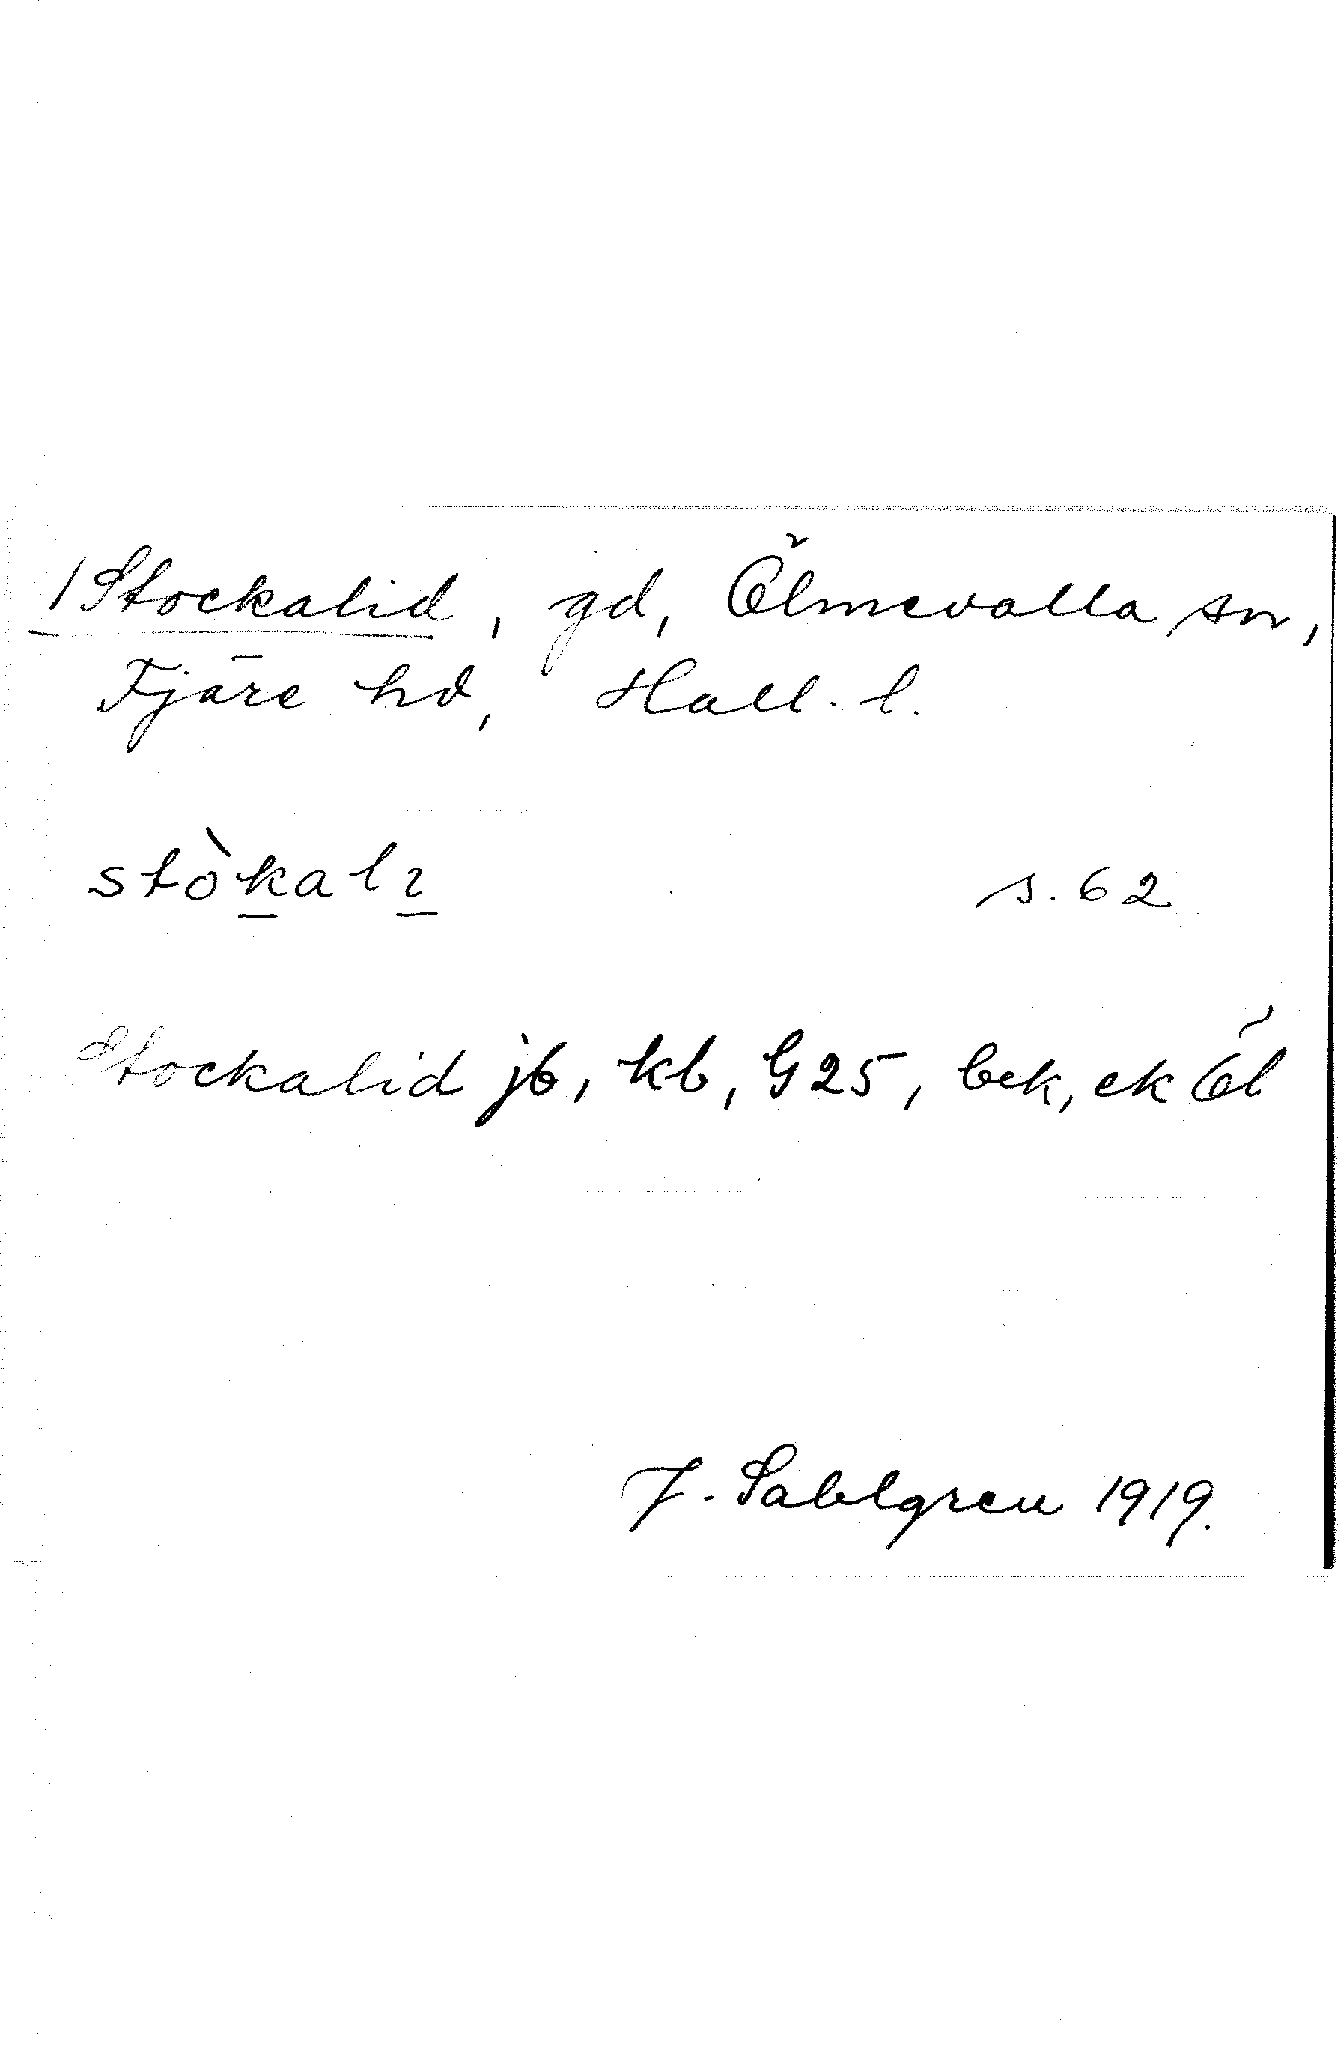 1 Stockalid, gd, Ölmevalla sn,
Fjäre hd, Hall. l.
stòkalɩ s. 62
Stockalid jb, kb, G25, bek, ek Öl
J. Sahlgren 1919.